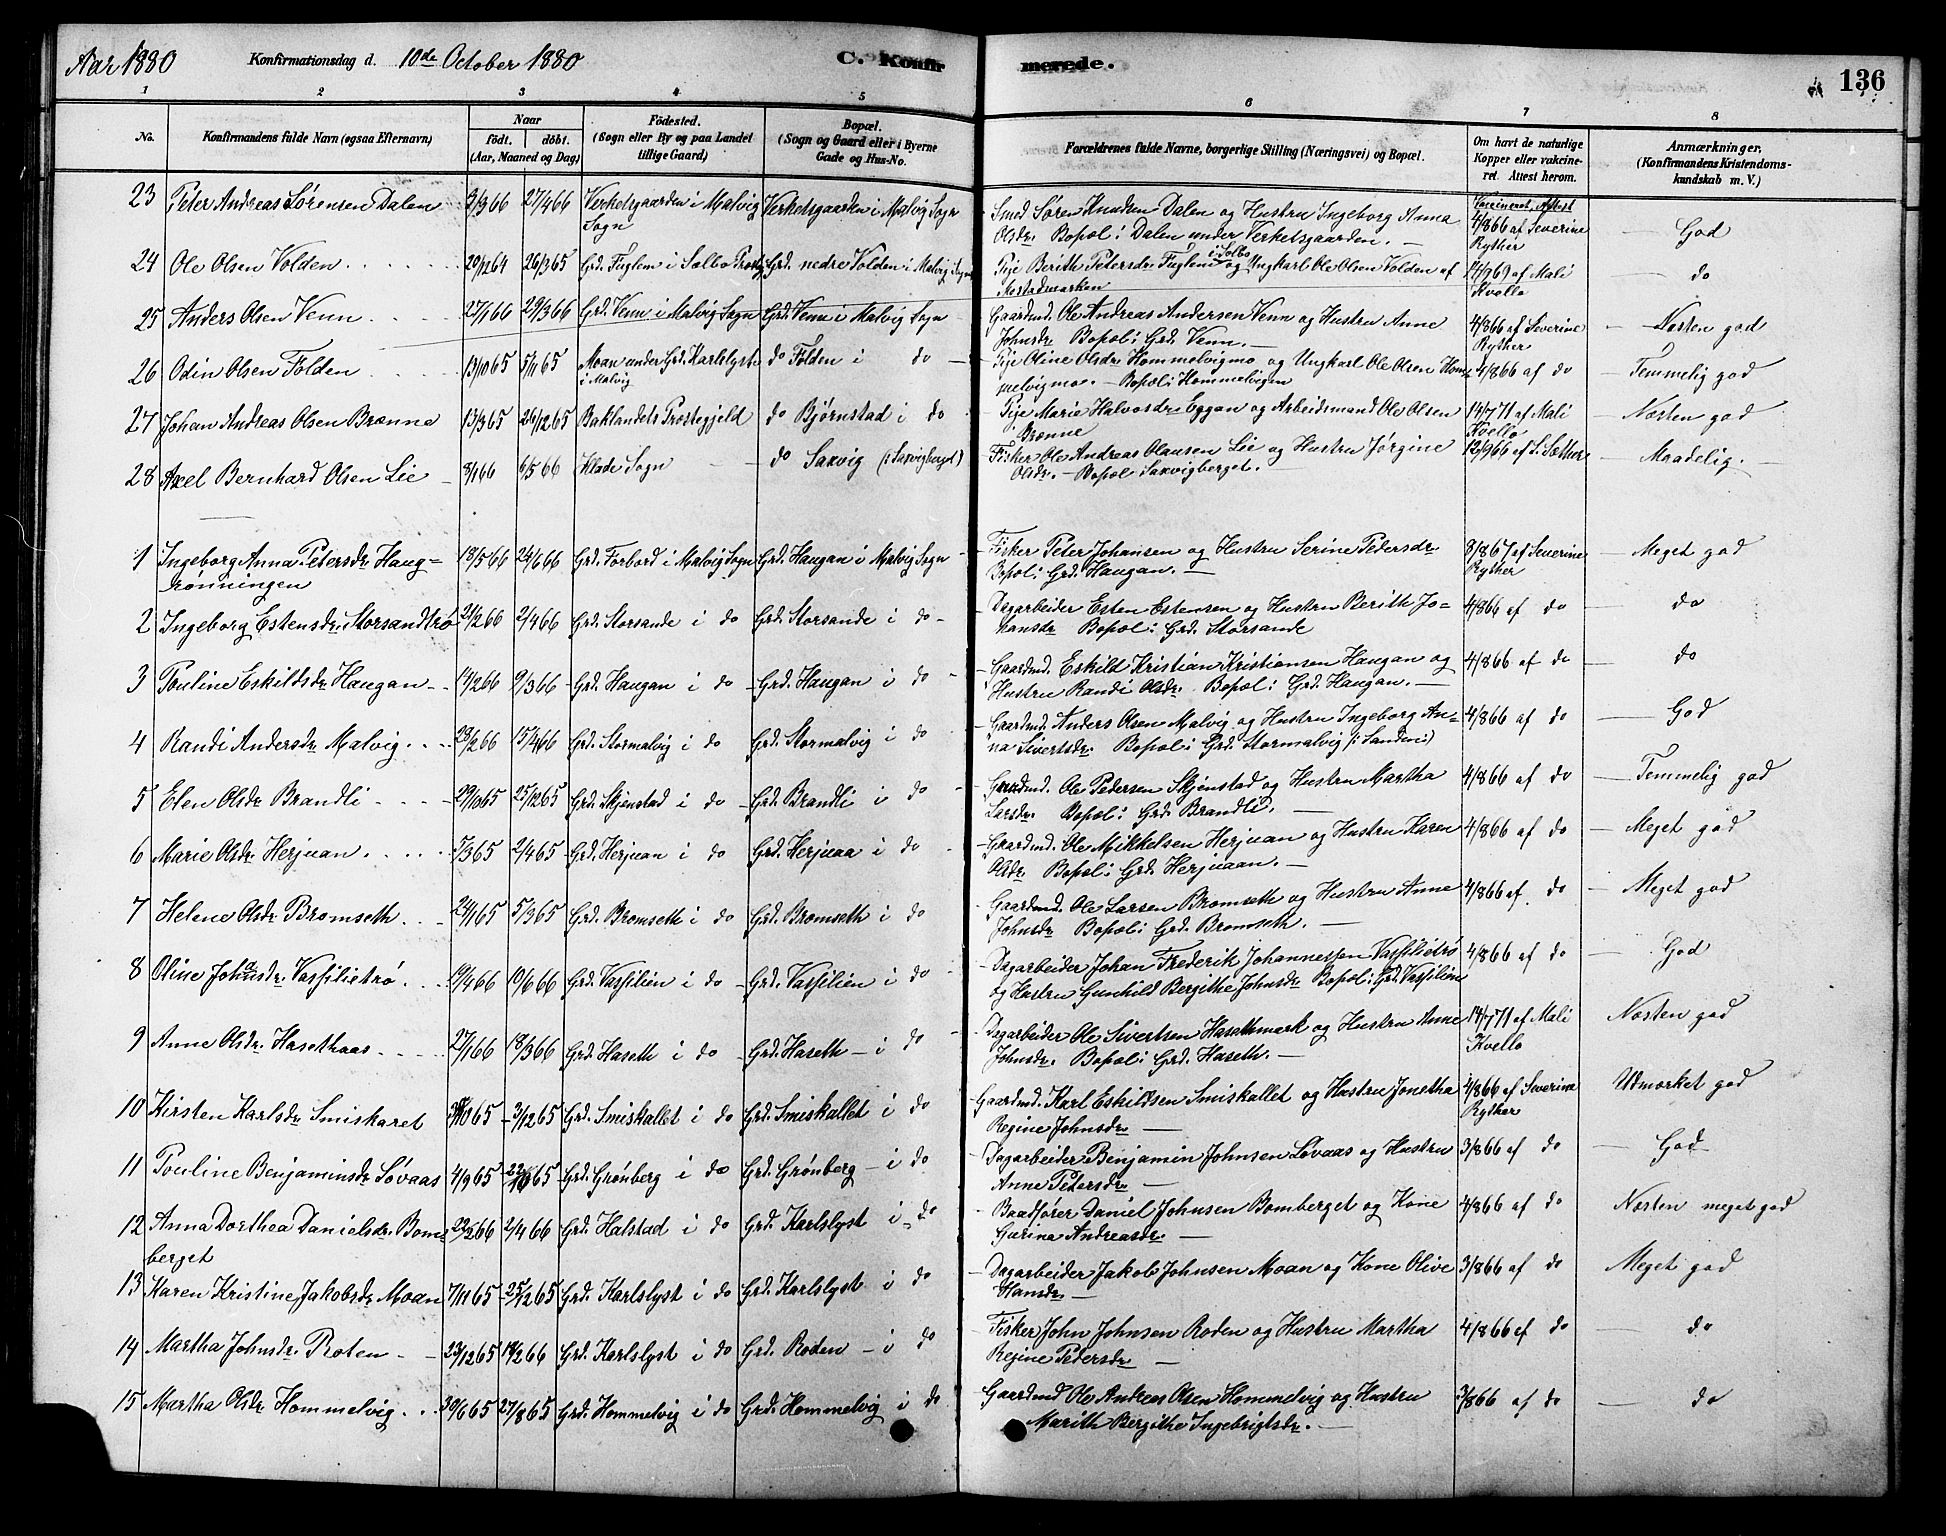 Aar 1880 Konfirmationsdag d. 10de October 1880 C. Konfirmerede. 136
1 2 3 4 5 6 7 8
No. Konfirmandens fulde Navn (ogsaa Efternavn) Naar födt. döbt. (Aar, Maaned og Dag) Födested. (Sogn eller By og paa Landet tillige Gaard) Bopæl. (Sogn og Gaard eller i Byerne Gade og Hus-No. Forældrenes fulde Navne, borgerlige Stilling (Næringsvei) og Bopæl. Om havt de naturlige Kopper eller vakcineret. Attest herom. Anmærkninger. (Konfirmandens Kristendomskundskab m. V.)
23 Peter Andreas Sørensen Dalen 3/3 66 27/4 66 Verketsgaarden i Malvig Sogn Verketsgaarden i Malvig Sogn Smed Søren Knudsen Dalen og Hustru Ingeborg Anna Olsdr. Bopæl: Dalen under Verketsgaarden. — Vaccineret, Attest 4/8 66 af Severine Ryther — God
24 Ole Olsen Volden 20/12 64 26/3 65 Grd. Fuglem i Sælbo Præstg. Grd. nedre Volden i Malvig Sogn Pige Berith Petersdr. Fuglem i Selbo og Ungkarl Ole Olsen Volden af Mostadmarken 14/9 69 af Mali Kvello — do
25 Anders Olsen Venn 27/1 66 29/3 66 Grd. Venn i Malvig Sogn Grd. Venn i Malvig Sogn Gaardmd. Ole Andreas Andersen Venn og Hustru Anne Johnsdr. Bopæl: Grd. Venn. — 4/8 66 af Severine Ryther — Næsten god
26 Odin Olsen Folden 13/10 65 5/11 65 Moan under Grd. Karlslyst i Malvig do Folden i do Pige Oline Olsdr. Hommelvigmo og Ungkarl Ole Olsen Hommelvigmo. — Bopæl: Hommelvigen 4/8 66 af do — Temmelig god
27 Johan Andreas Olsen Brønne 13/3 65 26/12 65 Baklandets Præstegjeld do Bjørnstad i do Pige Marie Halvorsdr. Eggan og Arbeidsmand Ole Olsen Brønne 14/7 71 af Mali Kvello — Næsten god
28 Axel Bernhard Olsen Lie 8/1 66 6/5 66 Slade Sogn do Saxvig (: Saxvigberget) Fisker Ole Andreas Olausen Lie og Hustru Jørgine Olsdr. — Bopæl Saxvigberget. 12/9 66 af S. Sæther — Maadelig. —
1 Ingeborg Anna Petersdr. Haugrønningen 18/5 66 24/6 66 Grd. Forbord i Malvig Sogn Grd. Haugan i Malvig Sogn Fisker Peter Johansen og Hustru Serine Pedersdr. Bopæl: Grd. Haugan. — 8/8 67 af Severine Ryther — Meget god
2 Ingeborg Estensdr. Storsandtrø 21/2 66 2/4 66 Grd. Storsande i do Grd. Storsande i do Dagarbeider Esten Estensen og Hustru Berith Johansdr. Bopæl: Grd. Storsande 4/8 66 af do — do
3 Pouline Eskildsdr. Haugan 14/2 66 9/3 66 Grd. Haugan i do Grd. Haugan i do Gaardmd. Eskild Kristian Kristiansen Haugan og Hustru Randi Olsdr. Bopæl: Grd. Haugan. — 4/8 66 af do — do
4 Randi Andersdr. Malvig 23/2 66 15/4 66 Grd. Stormalvig i do Grd. Stormalvig i do Gaardmd. Anders Olsen Malvig og Hustru Ingeborg Anna Sivertsdr. Bopæl: Grd. Stormalvig (: Sanden:) 4/8 66 af do — God
5 Elen Olsdr. Brandli 29/10 65 25/12 65 Grd. Skjenstad i do Grd. Brandli i do Gaardmd. Ole Pedersen Skjenstad og Hustru Martha Larsdr. Bopæl: Grd. Brandli. — 4/8 66 af do — Temmelig god
6 Marie Olsdr. Herjuan 5/3 65 2/4 65 Grd. Herjuan i do Grd. Herjuaa i do Gaardmd. Ole Mikkelsen Herjuan og Hustru Karen Olsdr. Bopæl: Grd. Herjuaan. — 4/8 66 af do — Meget god
7 Helene Olsdr. Bromseth 24/1 65 5/3 65 Grd. Bromseth i do Grd. Bromseth i do Gaardmd. Ole Larsen Bromseth og Hustru Anne Johnsdr. Bopæl: Grd. Bromseth. — 4/8 66 af do — Meget god
8 Oline Johansdr. Vasfilietrø 19/4 66 10/6 66 Grd. Vasfilien i do Grd. Vasfilien i do Dagarbeider Johan Frederik Johannessen Vasfilietrø og Hustru Gunhild Bergithe Johnsdr. Bopæl: Grd. Vasfilien 4/8 66 af do — God
9 Anne Olsdr. Hasethaas 27/1 66 18/3 66 Grd. Haseth i do Grd. Haseth i do Dagarbeider Ole Sivertsen Hasethmark og Hustru Anne Johnsdr. Bopæl: Grd. Haseth. — 14/7 71 af Mali Kvello Næsten god
10 Kirsten Karlsdr. Smiskaret 10 65 3/12 65 Grd. Smiskallet i do Grd. Smiskallet i do Gaardmd. Karl Eskildsen Smiskallet og Hustru Jonetha Regine Johnsdr. — 4/8 66 af Severina Ryther Udmærket god
11 Pouline Benjaminsdr. Løvaas 4/9 65 22/10 65 Grd. Grønberg i do Grd. Grønberg i do Dagarbeider Benjamin Johnsen Løvaas og Hustru Anne Petersdr. — 3/8 66 af do — God
12 Anna Dorthea Danielsdr. Bomberget 22/2 66 2/4 66 Grd. Halstad i do Grd. Karlslyst i do Baadfører Daniel Johnsen Bomberget og Kone Gurina Andreasdr. — 4/8 66 af do — Næsten meget god
13 Karen Kristine Jakobsdr. Moan 7/11 65 25/12 65 Grd. Karlslyst i do Grd. Karlslyst i do Dagarbeider Jakob Johnsen Moan og Kone Olive Hansdr. — 3/8 66 af do Meget god
14 Martha Johnsdr. Roten 23/12 65 18/2 66 Grd. Karlslyst i do Grd. Roden i do Fisker John Johnsen Roden og Hustru Martha Regine Pedersdr. — 4/8 66 af do — do
15 Martha Olsdr. Hommelvig 30/6 65 27/8 65 Grd. Hommelvig i do Grd. Hommelvig i do Gaardmd Ole Andreas Olsen Hommelvig og Hustru Marith Bergithe Ingebrigtsdr. — 3/8 66 af do — do